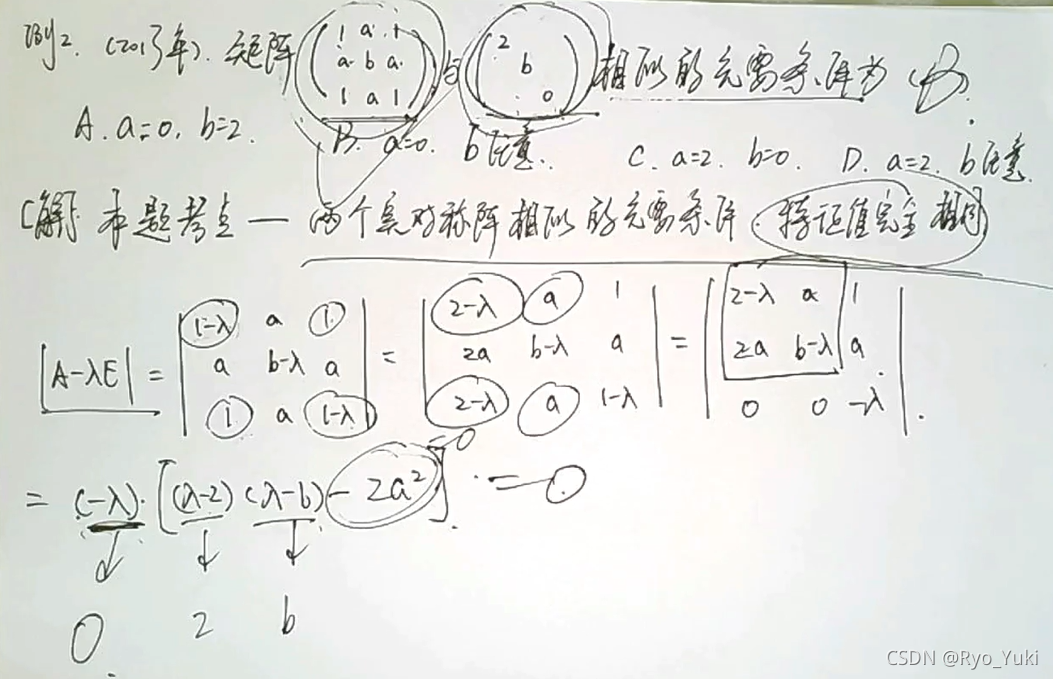 例2. (2013年). 矩阵 (1 a 1 / a b a / 1 a 1) 与 (2 / b / 0) 相似的充要条件为 (B).
A. a=0, b=2. B. a=0. b任意. C. a=2. b=0. D. a=2. b任意.
[解] 本题考点 — 两个实对称阵相似的充要条件. 特征值完全相同
|A-λE| = |1-λ a 1 / a b-λ a / 1 a 1-λ| = |2-λ a 1 / 2a b-λ a / 2-λ a 1-λ| = |2-λ a 1 / 2a b-λ a / 0 0 -λ|.
= (-λ)·[(λ-2)(λ-b) - 2a²]. = 0
=0
↓ ↓ ↓
0 2 b
CSDN @Ryo_Yuki